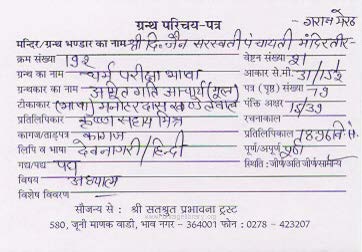 ग्रन्थ परिचय-पत्र
मन्दिर/ग्रन्थ भण्डार का नाम श्री दि. जैन सरस्वती पंचायती मंदिर
क्रम संख्या १९२ वेष्टन संख्या
ग्रन्थ का नाम धर्म परीक्षा भाषा आकार से.मी.
ग्रन्थकार का नाम अमृत गति आचार्य (मूल) पत्र (पृष्ठ) संख्या
टीकाकार (भाषा) मनोहरदास खण्डेलवाल पंक्ति अक्षर 15/39
प्रतिलिपिकार कृष्ण सहाय मिश्र रचनाकाल
कागज/ताड़पत्र कागज प्रतिलिपिकाल
लिपि व भाषा देवनागरी/हिन्दी पूर्ण/अपूर्ण पूर्ण
गद्य/पद्य पद्य स्थिति: जीर्ण/अति जीर्ण/सामान्य
विषय अध्यात्म
विशेष विवरण
सौजन्य से : श्री सतश्रुत प्रभावना ट्रस्ट
580, जूनी माणक वाडी, भाव नगर - 364001 फोन : 0278 - 423207